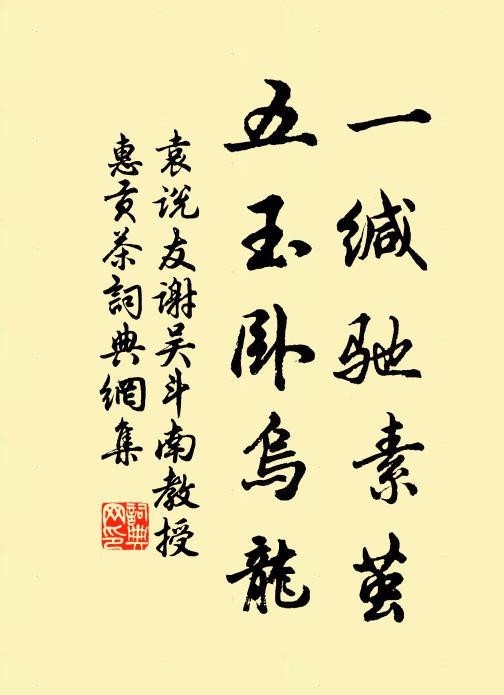 一缄驰素茧
五玉卧乌龍
袁说友谢吴斗南教授
惠贡茶詞典網集
詞典
网印